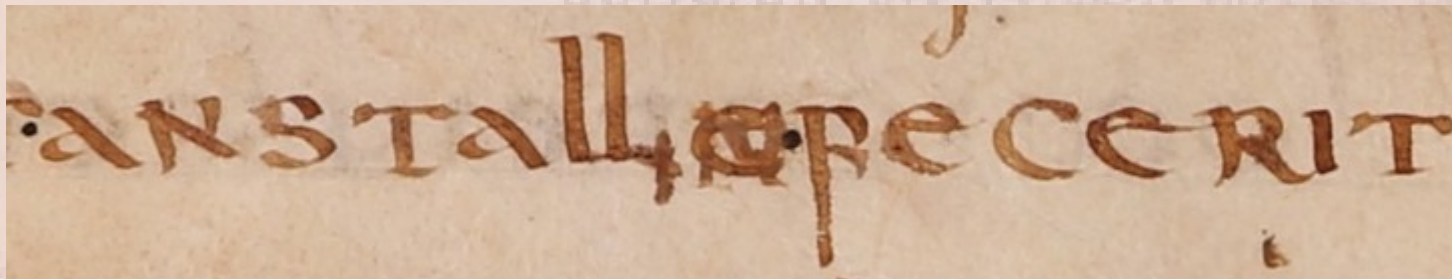 ANSTALL FECERIT